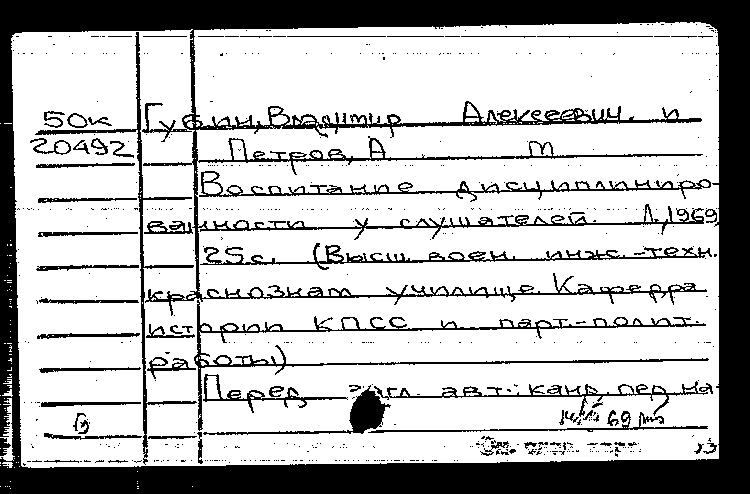 50к Губин, Владимир Алексеевич. и
20492 Петров, А М
Воспитание дисциплиниро-
ванности у слушателей. Л., 1969
25с. (Высш. воен. инж.-техн.
краснознам училище. Кафедра
истории КПСС и парт.-полит.
работы)
Перед загл. авт.: канд. пед. на-
69